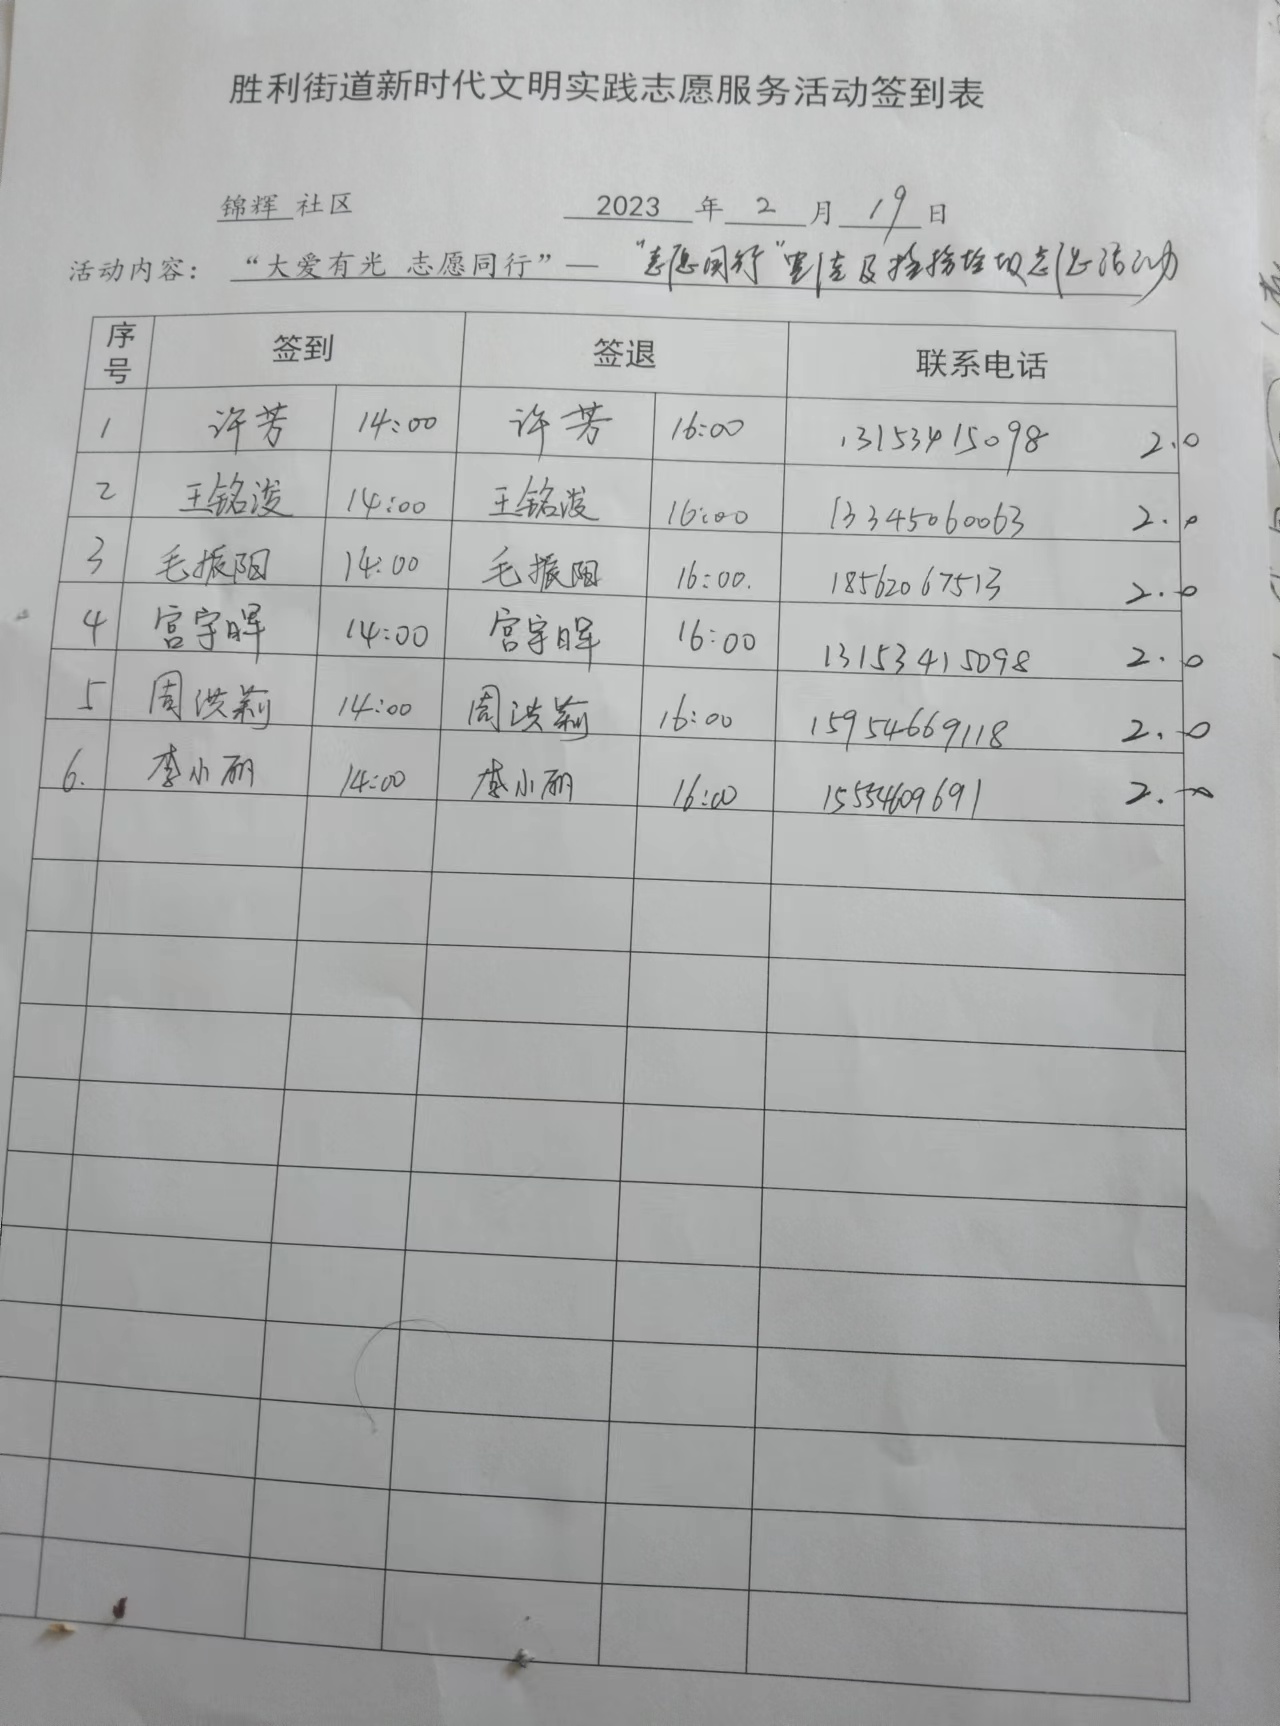 胜利街道新时代文明实践志愿服务活动签到表
锦辉 社区 2023 年 2 月 19 日
活动内容: “大爱有光 志愿同行”— “志愿同行” 及 活动
序号 签到 签退 联系电话
1 许芳 14:00 许芳 16:00 13153415098 2.0
2 王铭浚 14:00 王铭浚 16:00 13345060063 2.0
3 毛振阳 14:00 毛振阳 16:00. 18562067513 2.0
4 宫宇晖 14:00 宫宇晖 16:00 13153415098 2.0
5 周洪莉 14:00 周洪莉 16:00 15954669118 2.0
6. 李小丽 14:00 李小丽 16:00 15554609691 2.0